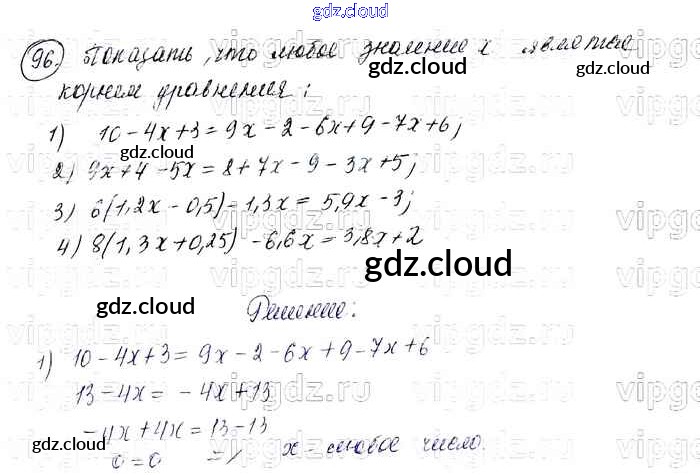 gdz.cloud
96. Показать, что любое значение x является
корнем уравнения:
1) 10 - 4x + 3 = 9x - 2 - 6x + 9 - 7x + 6;
2) 9x + 4 - 5x = 8 + 7x - 9 - 3x + 5;
3) 6(1,2x - 0,5) - 1,3x = 5,9x - 3;
4) 8(1,3x + 0,25) - 6,6x = 3,8x + 2
Решение:
1) 10 - 4x + 3 = 9x - 2 - 6x + 9 - 7x + 6
13 - 4x = - 4x + 13
- 4x + 4x = 13 - 13
0 = 0 => x - любое число.
gdz.cloud
gdz.cloud
gdz.cloud
gdz.cloud
gdz.cloud
gdz.cloud
vipgdz.ru